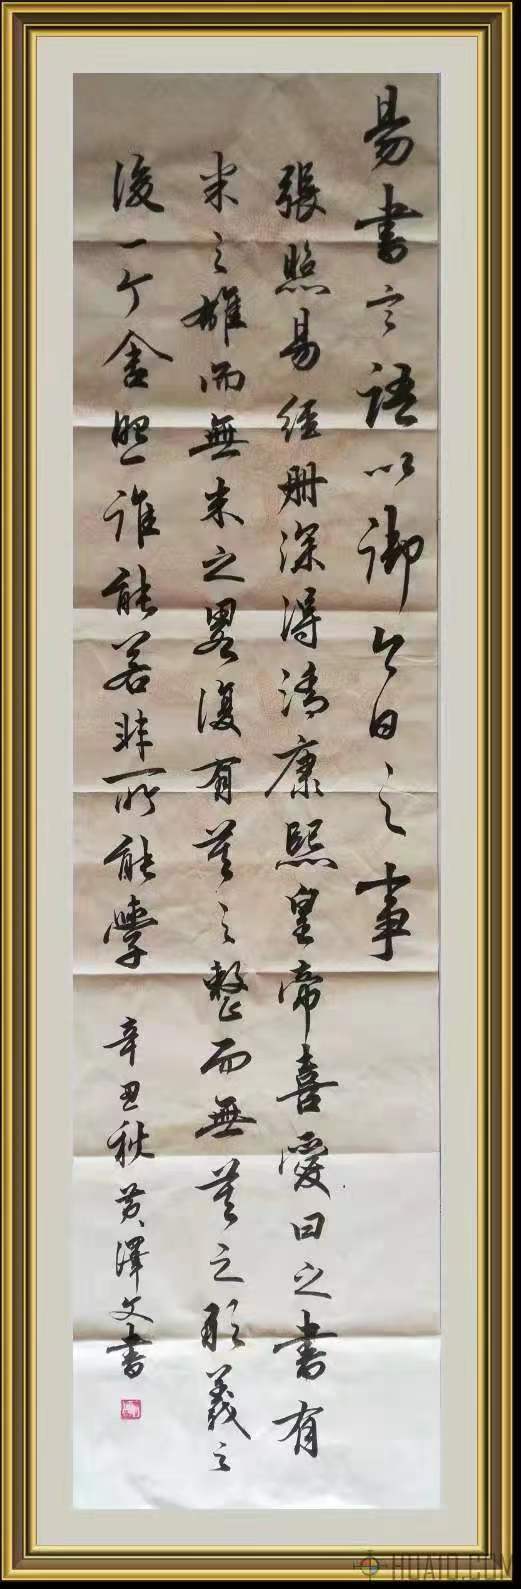 易书言语以御今日之事
張照易經册深得清康熙皇帝喜愛曰之書有
米之雄而無米之略復有董之整而無董之形義之
後一个舍照誰能若非所能學
辛丑秋黄澤文書
HUAIO.COM